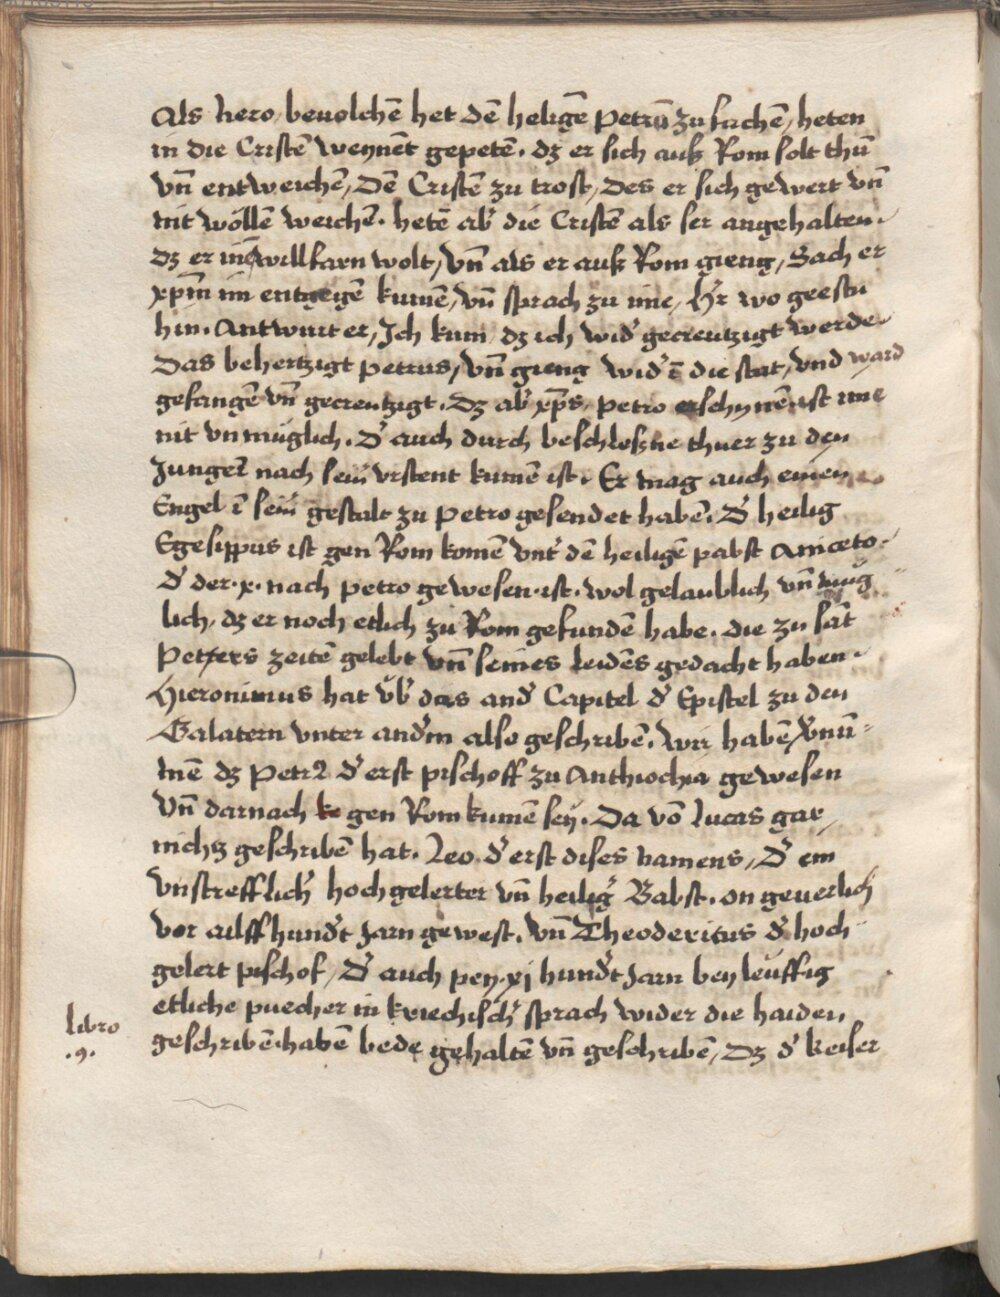 Als Nero, beuolchē het dē heligē Petrū zu fachē, heten
in die Cristē weynēt gepetē. dz er sich auß Rom solt thū
vn̄ entweichē, dē Cristē zu trost, des er sich gewert vn̄
nit wöllē weichē. hetē ab' die Cristē als ser angehalten.
dz er inē willfarn wolt, vn̄ als er auß Rom gieng, Sach er
xpm̄ im entgegē kumē, vn̄ sprach zu ime, Hr̄ wo geestu
hin. Antwurt er, Ich kum, dz ich wid' gecreutzigt werde.
Das behertzigt petrus, vn̄ gieng wid' ī die stat, vnd ward
gefangē vn̄ gecreutzigt. dz ab' xp̄s, petro erschynē, ist ime
nit vnmüglich. d' auch durch beschloßne thuer zu den
Junger̄ nach sein̄ vrstent kumē ist. Er mag auch einen
Engel ī sein̄ gestalt zu petro gesendet habē. D' heilig
Egesippus ist gen Rom komē vnt' dē heiligē pabst Aniceto.
d' der .x. nach petro gewesen ist. wol gelaublich vn̄ müg
lich, dz er noch etlich zu Rom gefundē habe. die zu sāt
Petters zeitē gelebt vn̄ seines leidēs gedacht haben.
Hieronimus hat vb' das and' Capitel d' Epistel zu den
Galatern vnter and'm also geschribē. wir habē v'nū-
mē dz Petr9 d' erst pischoff zu Anthiochia gewesen
vn̄ darnach ke gen Rom kumē sey. Da vō Lucas gar
nichs geschribē hat. Leo d' erst dises namens, d' ein
vnstrefflich' hochgelerter vn̄ heilig' Babst. on geuerlich
vor ailffhund't Jarn gewest. vn̄ Theoderitus d' hoch
gelert pischof, d' auch pey xj hund't Jarn beyleuffig
etliche puecher in kriechisch' sprach wider die haiden
geschribē habē bede gehaltē vn̄ geschribē, dz d' keiser
libro
.9.